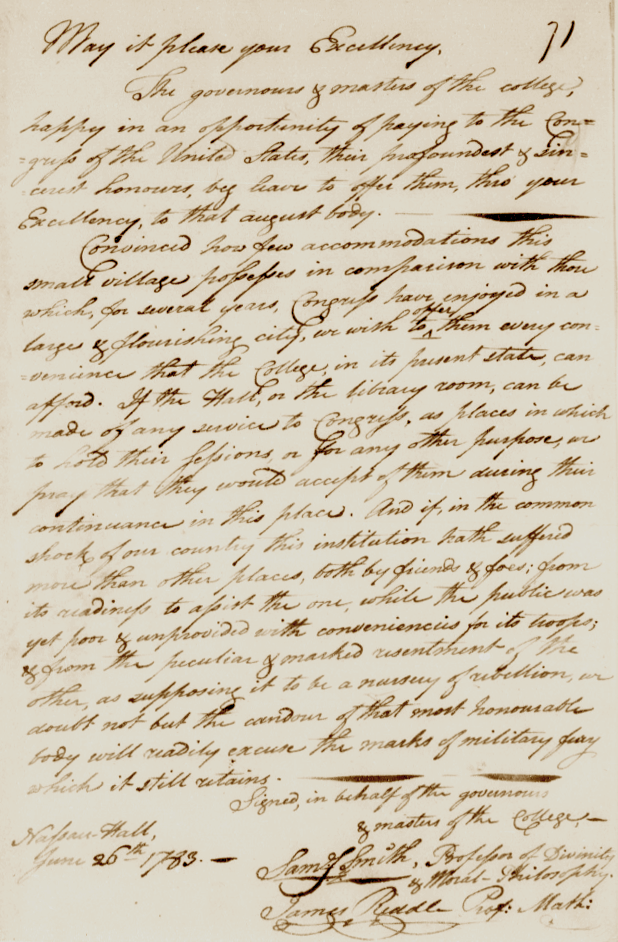 71
May it please your Excellency,
The governours & masters of the college,
happy in an opportunity of paying to the Con=
=gress of the United States, their profoundest & sin=
=cerest honours, beg leave to offer them, thro your
Excellency, to that august body.
Convinced how few accommodations this
small village possesses in comparison with those
which, for several years, Congress have enjoyed in a
large & flourishing city, we wish to offer them every con=
=venience that the College, in its present state, can
afford. If the Hall, or the library room, can be
made of any service to Congress, as places in which
to hold their sessions, or for any other purpose, we
pray that they would accept of them during their
continuance in this place. And if, in the common
shock of our country this institution hath suffered
more than other places, both by friends & foes; from
its readiness to assist the one, while the public was
yet poor & unprovided with conveniencies for its troops;
& from the peculiar & marked resentment of the
other, as supposing it to be a nursery of rebellion, we
doubt not but the candour of that most honourable
body will readily excuse the marks of military fury
which it still retains.
Signed, in behalf of the governours
& masters of the College,
Nassau-Hall,
June 26th 1783.
Saml. S. Smith, Professor of Divinity
& Moral Philosophy.
James Riddle Prof: Math: